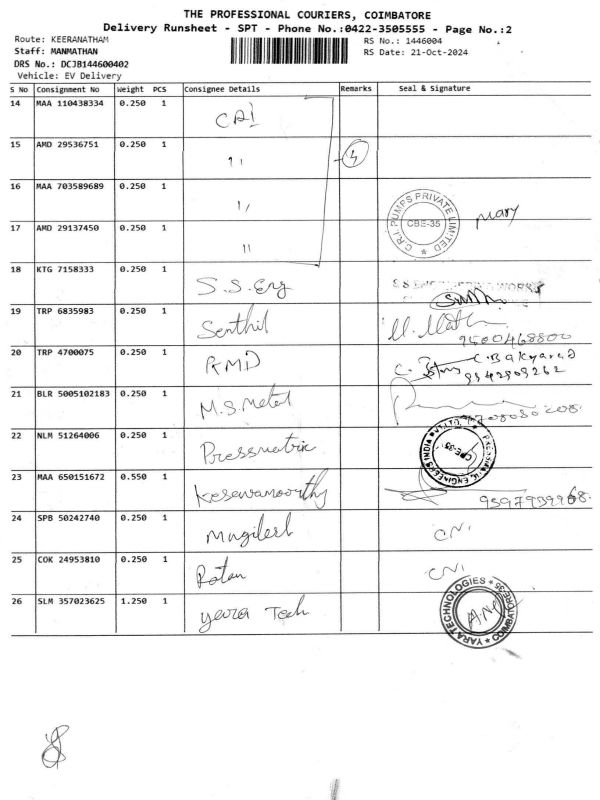 THE PROFESSIONAL COURIERS, COIMBATORE
Delivery Runsheet - SPT - Phone No.:0422-3505555 - Page No.:2
Route: KEERANATHAM RS No.: 1446004
Staff: MANMATHAN RS Date: 21-Oct-2024
DRS No.: DCJB144600402
Vehicle: EV Delivery
S No Consignment No Weight PCS Consignee Details Remarks Seal & Signature
14 MAA 110438334 0.250 1 CRI
15 AMD 29536751 0.250 1 ''
16 MAA 703589689 0.250 1 ''
C.R.I. PUMPS PRIVATE LIMITED CBE-35 Mary
17 AMD 29137450 0.250 1 ''
18 KTG 7158333 0.250 1 S.S. Eng
19 TRP 6835983 0.250 1 Senthil
20 TRP 4700075 0.250 1 RMD C. Bakyaraj
21 BLR 5005102183 0.250 1 M.S. Metal
22 NLM 51264006 0.250 1 Pressmatric
23 MAA 650151672 0.550 1 Kesavamoorthy
24 SPB 50242740 0.250 1 Mugilesh
25 COK 24953810 0.250 1 Ratan
26 SLM 357023625 1.250 1 Yaara Tech YARA TECHNOLOGIES